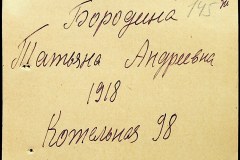 Бородина
Татьяна Андреевна
1918
Котельная 98